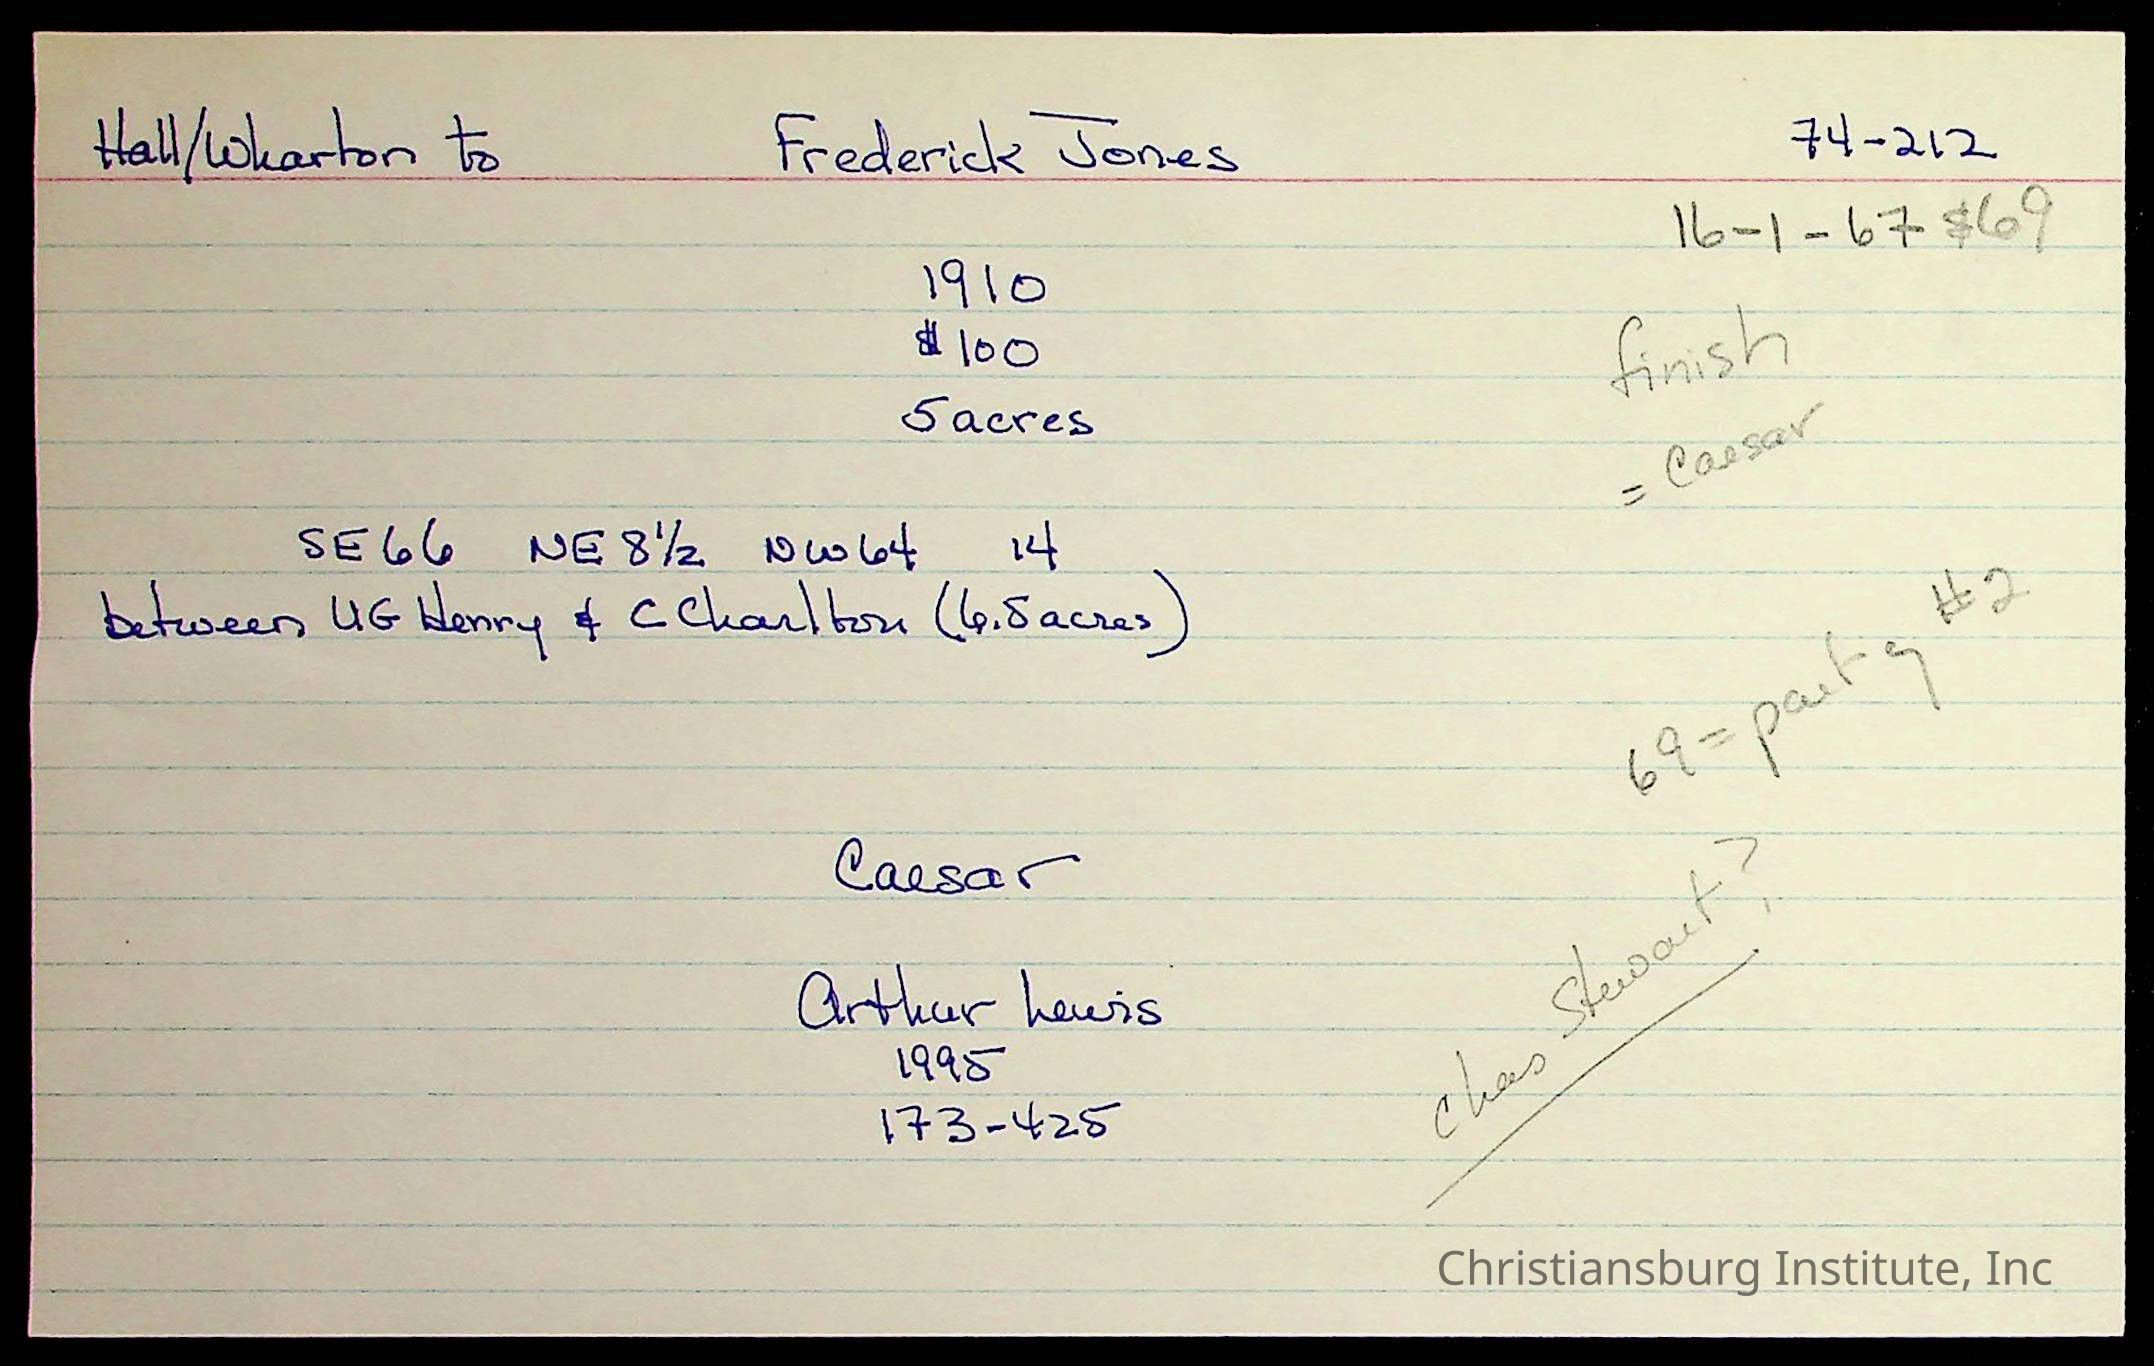 Hall/Wharton to Frederick Jones 74-212
16-1-67 $69
1910
$100
5 acres
finish
= Caesar
SE 66 NE 8 1/2 NW 64 14
between UG Henry & C Charlton (6.5 acres)
69 = part of #2
Caesar
Chas Stewart?
Arthur Lewis
1995
173-425
Christiansburg Institute, Inc